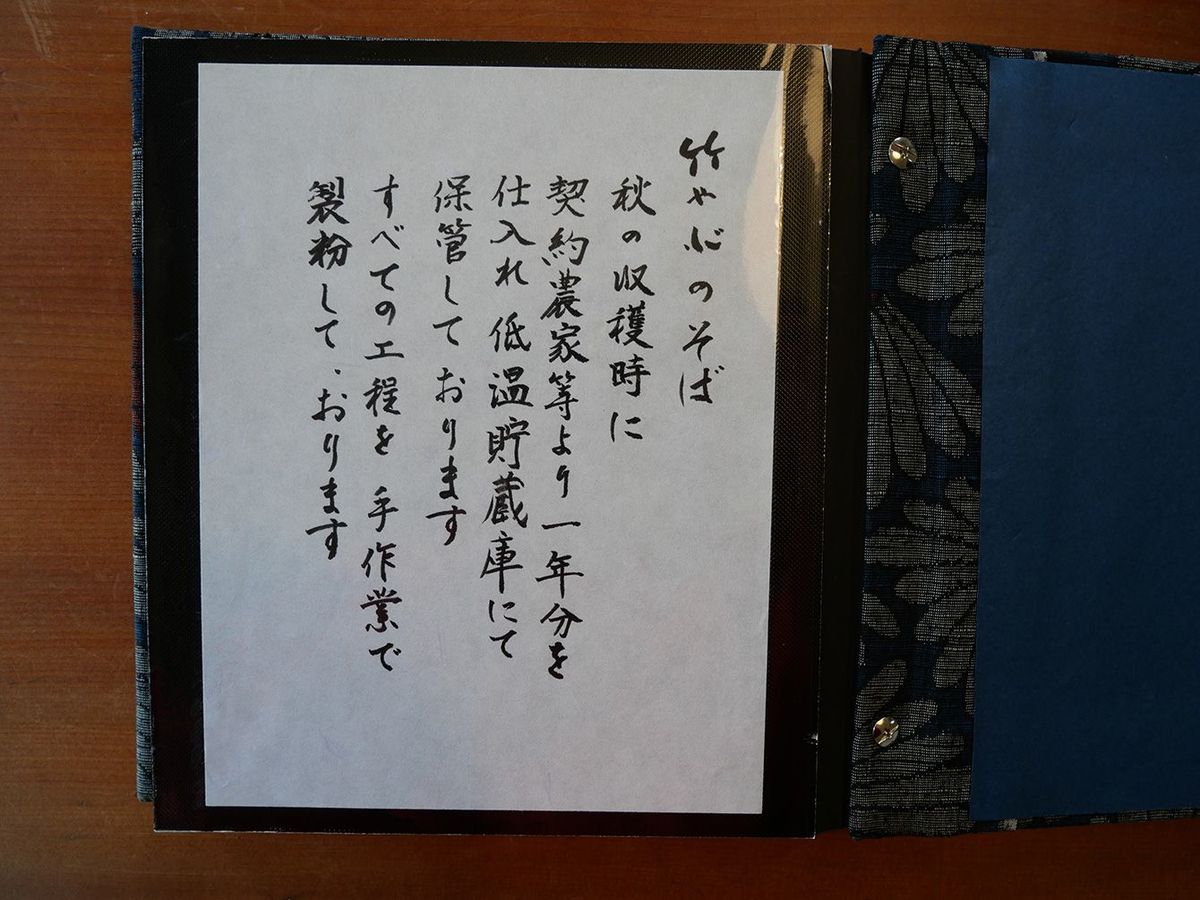 竹やぶのそば
秋の収穫時に
契約農家等より一年分を
仕入れ 低温貯蔵庫にて
保管して おります
すべての工程を 手作業で
製粉して、おります